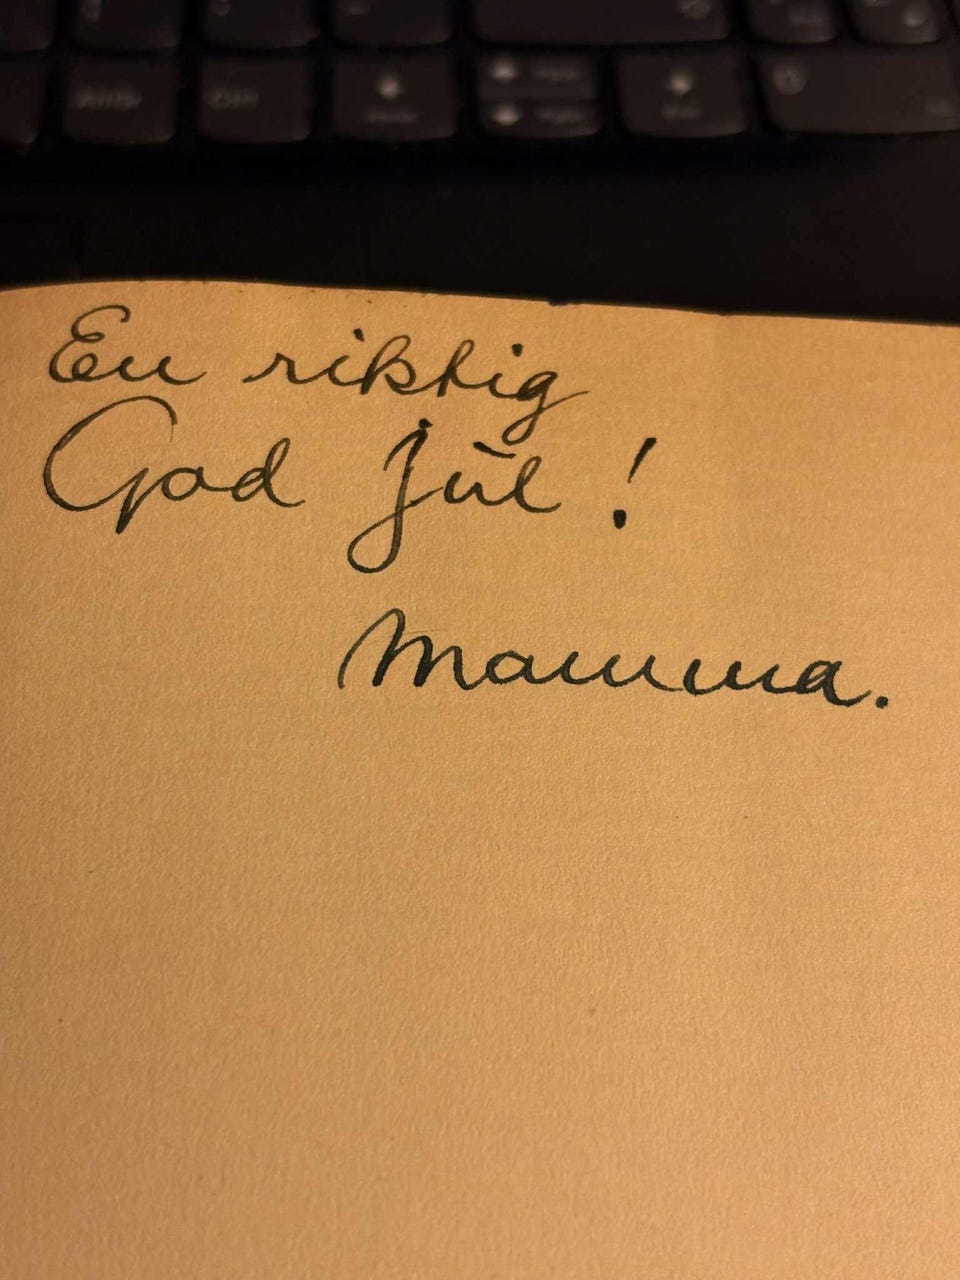 En riktig
God Jul!
Mamma.